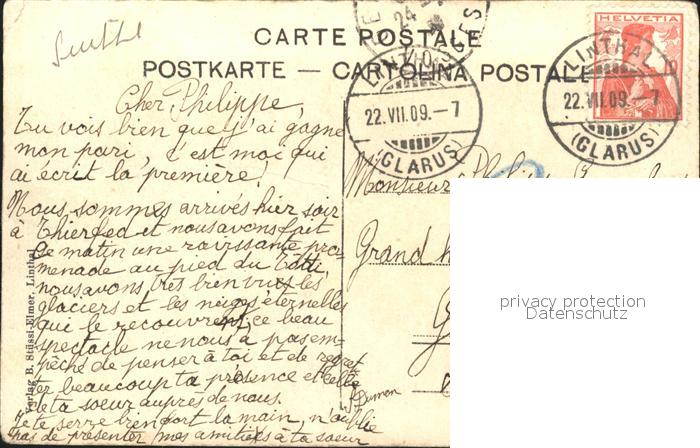 Linthal
CARTE POSTALE
POSTKARTE — CARTOLINA POSTALE
HELVETIA
24
VOSGES
LINTHAL
22.VII.09.–7
(GLARUS)
LINTHAL
22.VII.09.–7
(GLARUS)
Cher Philippe,
Tu vois bien que j'ai gagné
mon pari, c'est moi qui
ai écrit la première!
Nous sommes arrivés hier soir
à Thierfed et nous avons fait
ce matin une ravissante pro-
menade au pied du Tödi,
nous avons très bien vu les
glaciers et les neiges éternelles
qui le recouvrent, ce beau
spectacle ne nous a pas em-
pêché de penser à toi et de regret-
ter beaucoup ta présence et celle
de ta soeur auprès de nous.
Je te serre bien fort la main, n'oublie
pas de présenter mes amitiés à ta soeur
Monsieur Philippe
Grand
Verlag B. Stüssi-Elmer, Linthal
privacy protection
Datenschutz